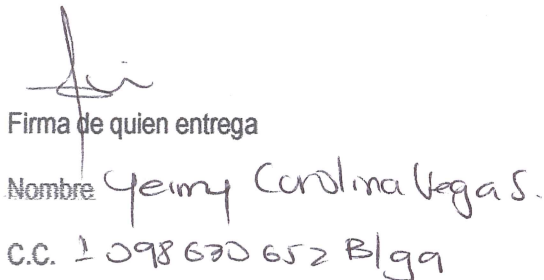 Firma de quien entrega
Nombre Yeimy Carolina Vega S.
C.C. 1 098 630 652 Blga